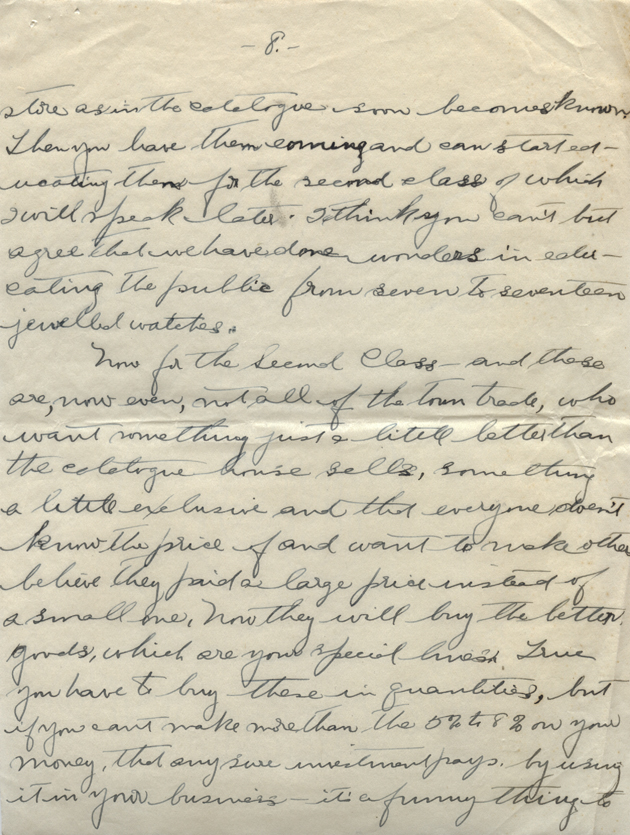 - 8. -
store as in the catalogue soon becomes known.
Then you have them coming and can start ed-
ucating them for the second class of which
I will speak later. I think you can't but
agree that we have done wonders in edu-
cating the public from seven to seventeen
jewelled watches.
Now for the Second Class - and these
are, now even, not all of the town trade, who
want something just a little better than
the catalogue house sells, something
a little exclusive and that everyone doesn't
know the price of and want to make others
believe they paid a large price instead of
a small one. Now they will buy the better
goods, which are your special lines. True
you have to buy these in quantities, but
if you can't make more than the 5% to 8% on your
money, that any sure investment pays, by using
it in your business - it's a funny thing to